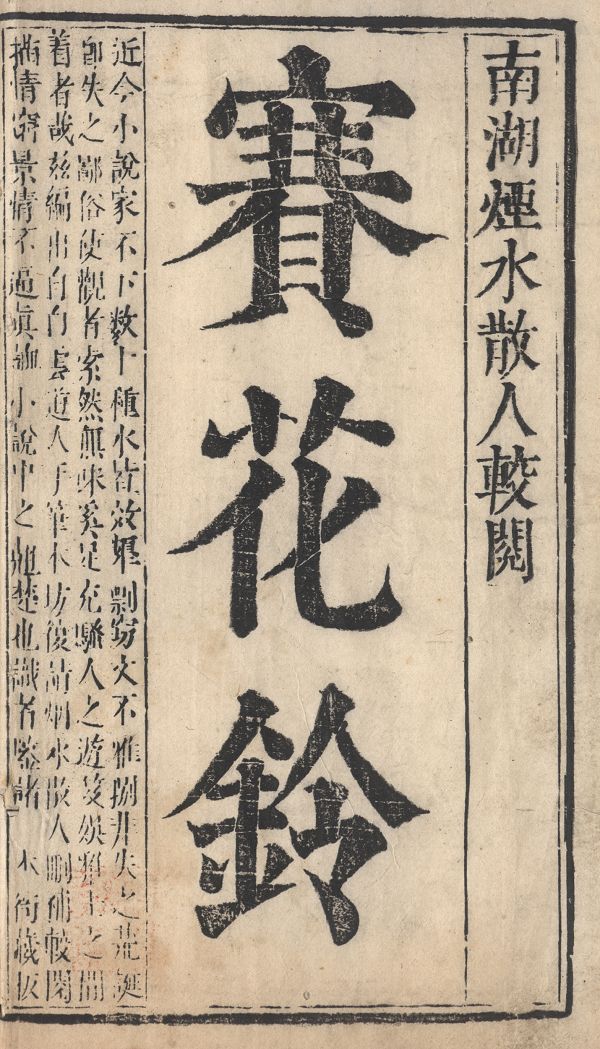 南湖煙水散人較閱
賽花鈴
近今小說家不下數十種水皆效顰剽竊文不雅馴非失之荒誕
即失之鄙俗使觀者索然無味奚足充騷人之遊笈娛雅士之閒
着者哉茲編出自白雲道人手筆本坊復請烟水散人刪補較閱
描情窮景情不逼真誠小說中之翹楚也識者鑒諸 本衙藏板